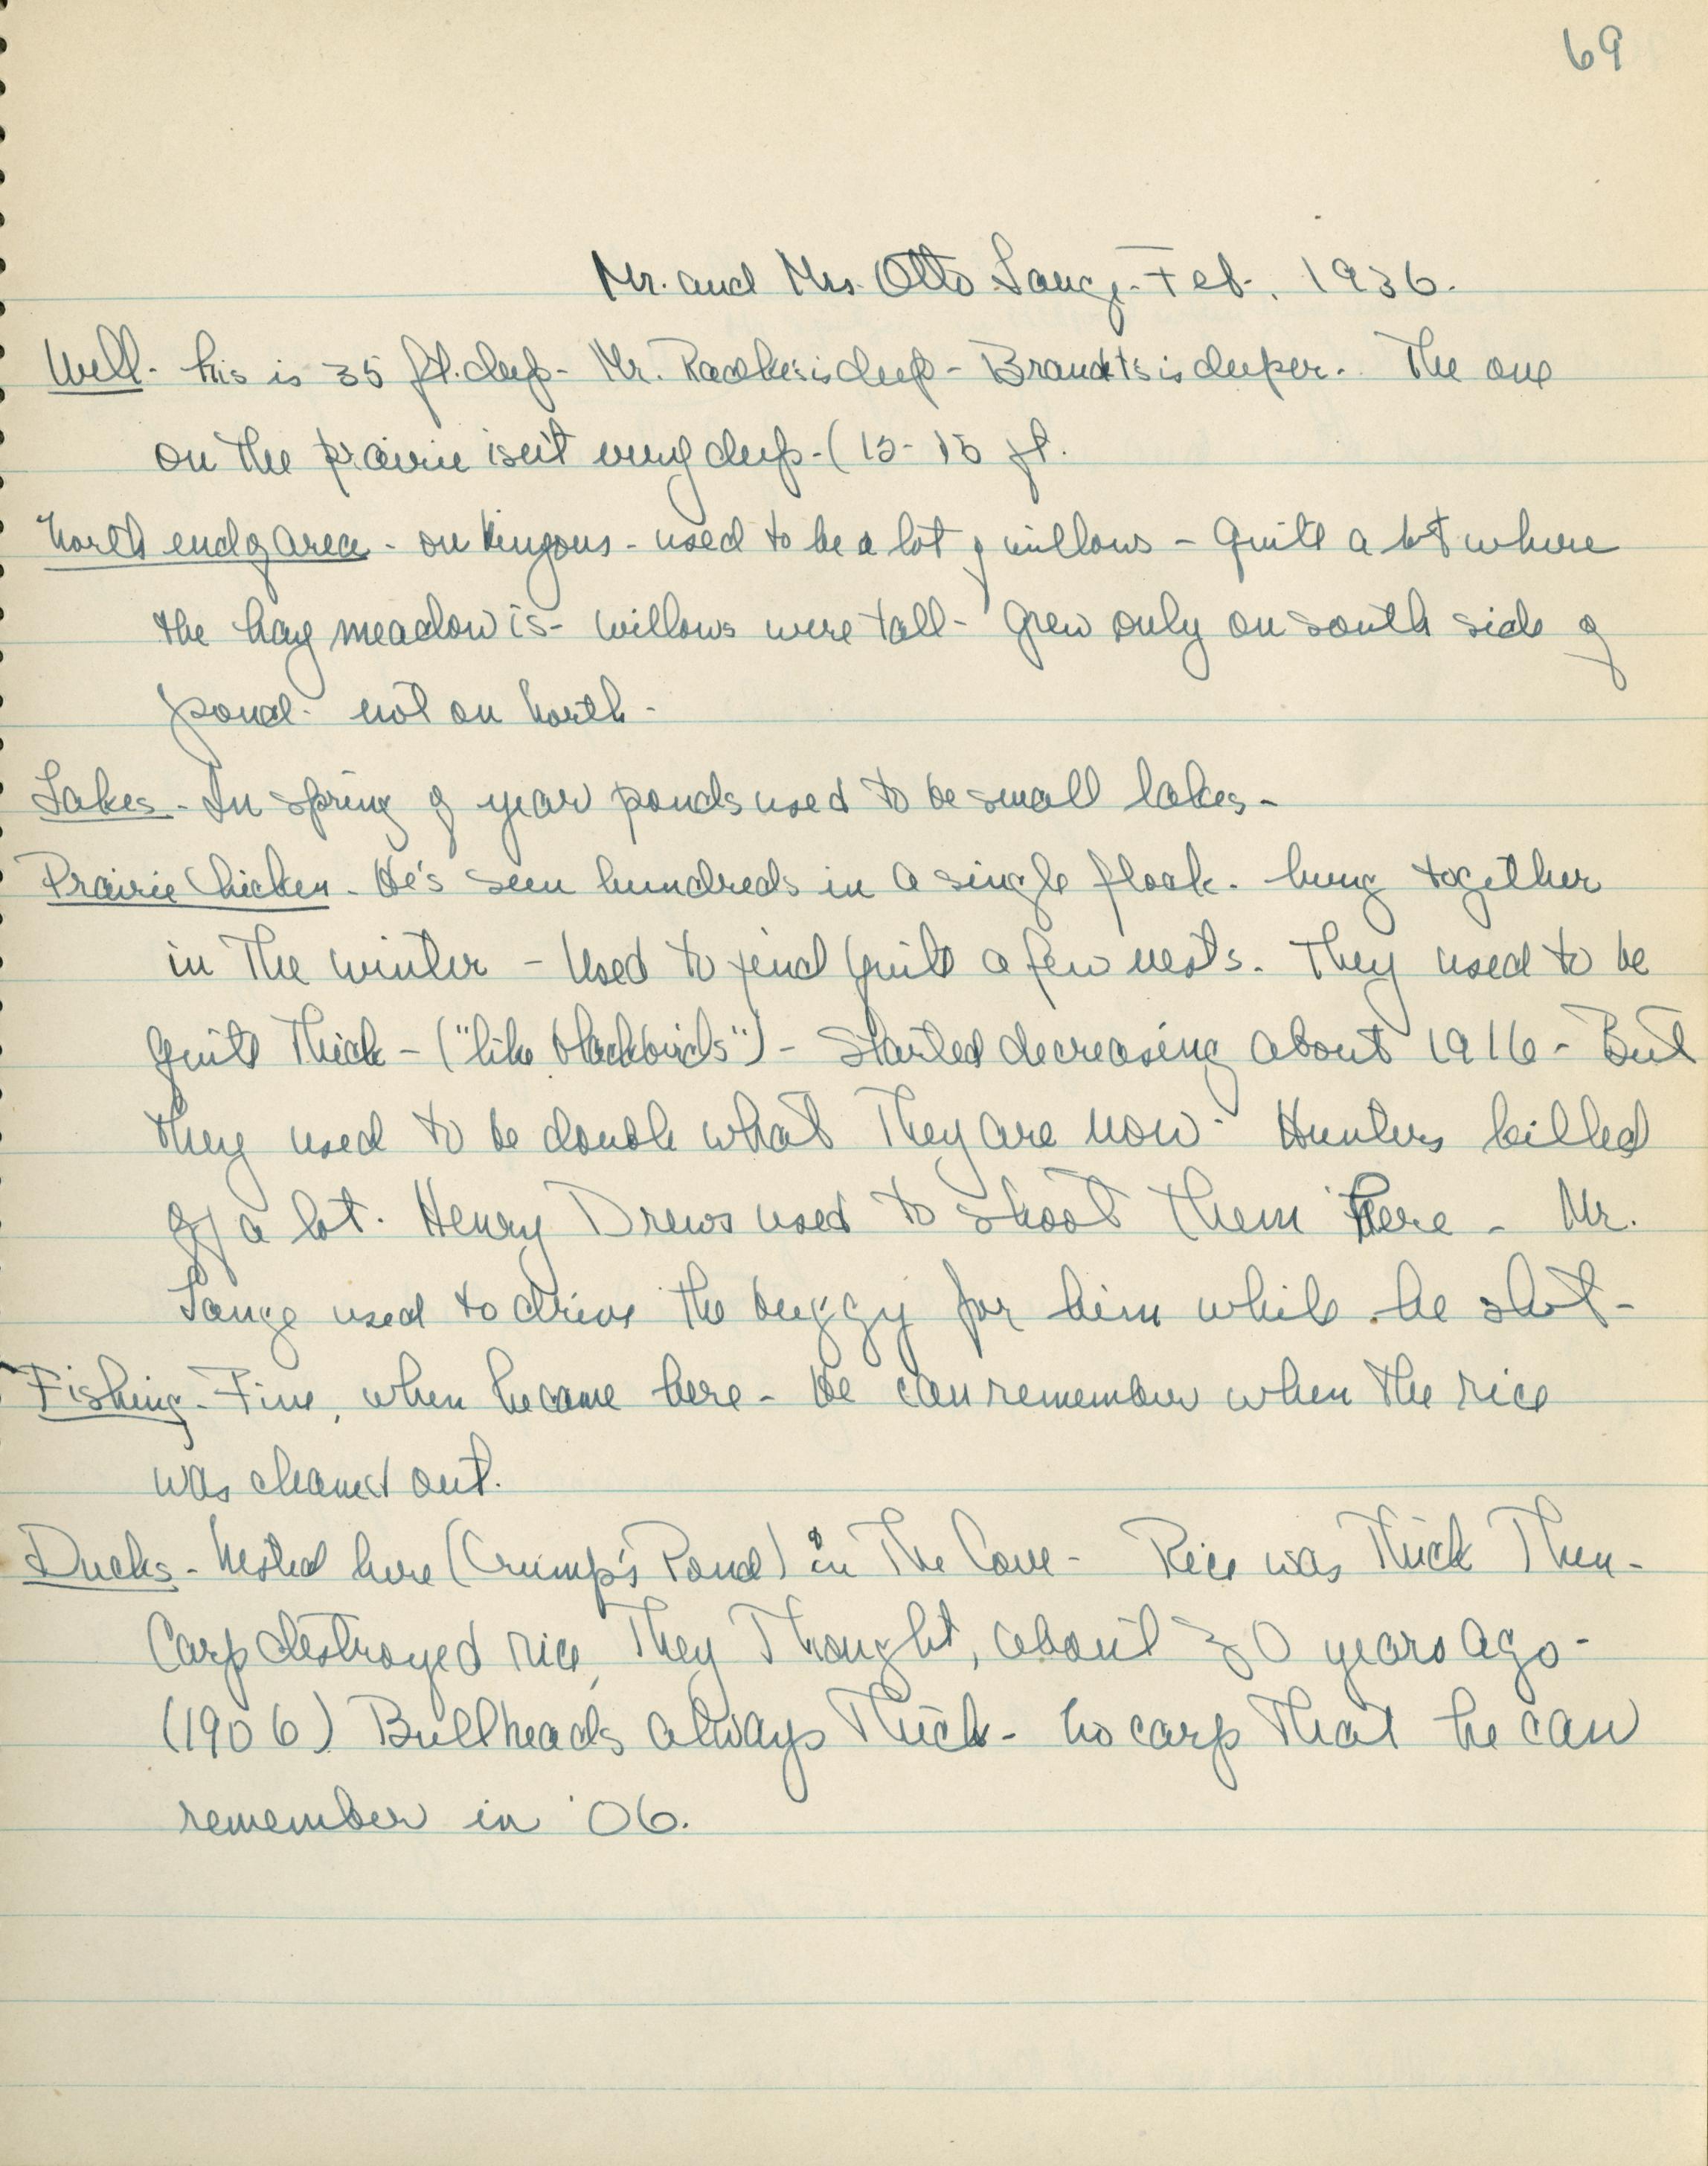 69
Mr. and Mrs. Otto Lange - Feb., 1936.
Well - his is 35 ft. deep - Mr. Radke's is deep - Brandt's is deeper. The one
on the prairie isn't very deep - (12-15 ft.
North end of area - on - used to be a lot of willows - Quite a lot where
the hay meadow is - Willows were tall - Grew only on south side of
pond - not on north -
Lakes - In spring of year ponds used to be small lakes -
Prairie Chicken - He's seen hundreds in a single flock - hung together
in the winter - Used to find quite a few nests. They used to be
quite thick - ("like blackbirds") - Started decreasing about 1916 - But
they used to be double what they are now - Hunters killed
off a lot. Henry Drews used to shoot them here - Mr.
Lange used to drive the buggy for him while he shot -
Fishing - Fine, when he came here - He can remember when the rice
was cleaned out.
Ducks - Nested here (Crump's Pond) in the Cove - Rice was thick then -
Carp destroyed rice, they thought, about 30 years ago -
(1906) Bullheads always thick - no carp that he can
remember in '06.